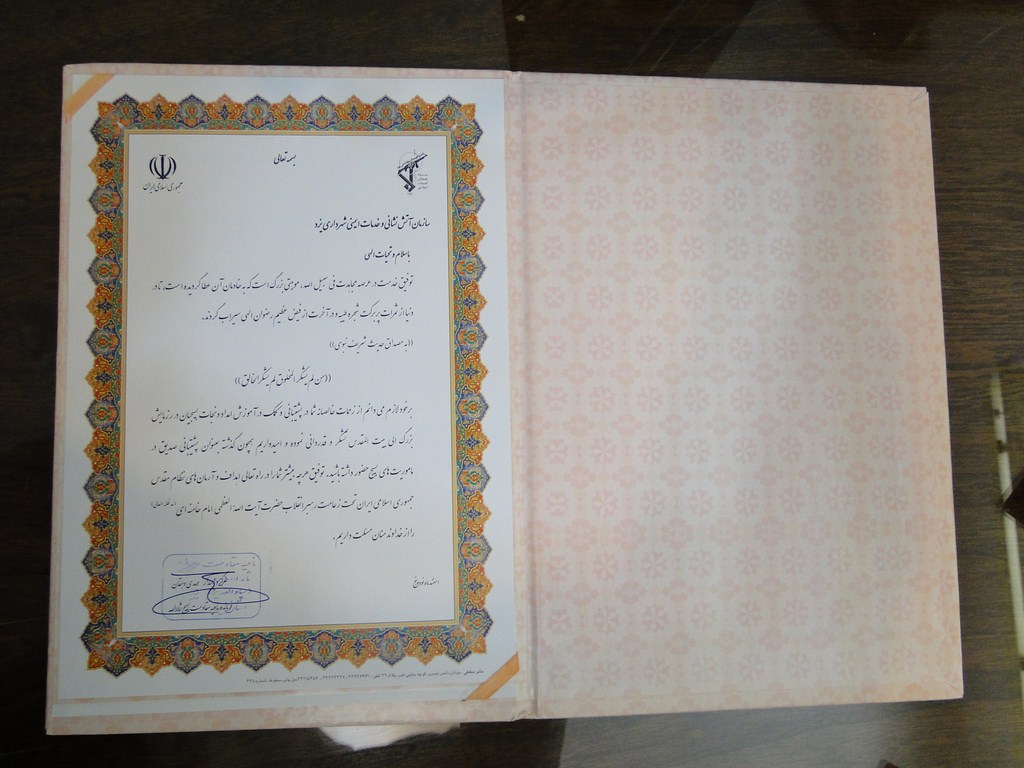 بسمه تعالی
جمهوری اسلامی ایران
سازمان آتش نشانی و خدمات ایمنی شهرداری یزد
باسلام و تحیات الهی
توفیق خدمت در عرصه مجاهدت فی سبیل الله، موهبتی بزرگ است که به خادمان آن عطا گردیده است، تا در
دنیا از ثمرات پربرکت شجره طیبه و در آخرت از فیض عظیم رضوان الهی سیراب گردند.
((به مصداق حدیث شریف نبوی))
((من لم یشکر المخلوق لم یشکر الخالق))
برخود لازم می دانم از زحمات خالصانه شما در پشتیبانی و کمک در آموزش امداد و نجات بسیجیان در رزمایش
بزرگ الی بیت المقدس تشکر و قدردانی نموده و امیدواریم همچون گذشته بعنوان پشتیبانی صدیق در
ماموریت های بسیج حضور داشته باشید. توفیق هرچه بیشتر شما را در راه تعالی اهداف و آرمان های نظام مقدس
جمهوری اسلامی ایران تحت زعامت رهبر انقلاب حضرت آیت الله العظمی امام خامنه ای (مد ظله العالی)
را از خداوند منان مسئلت داریم.
اسفند ماه
ناحیه مقاومت
فرمانده ناحیه مقاومت بسیج